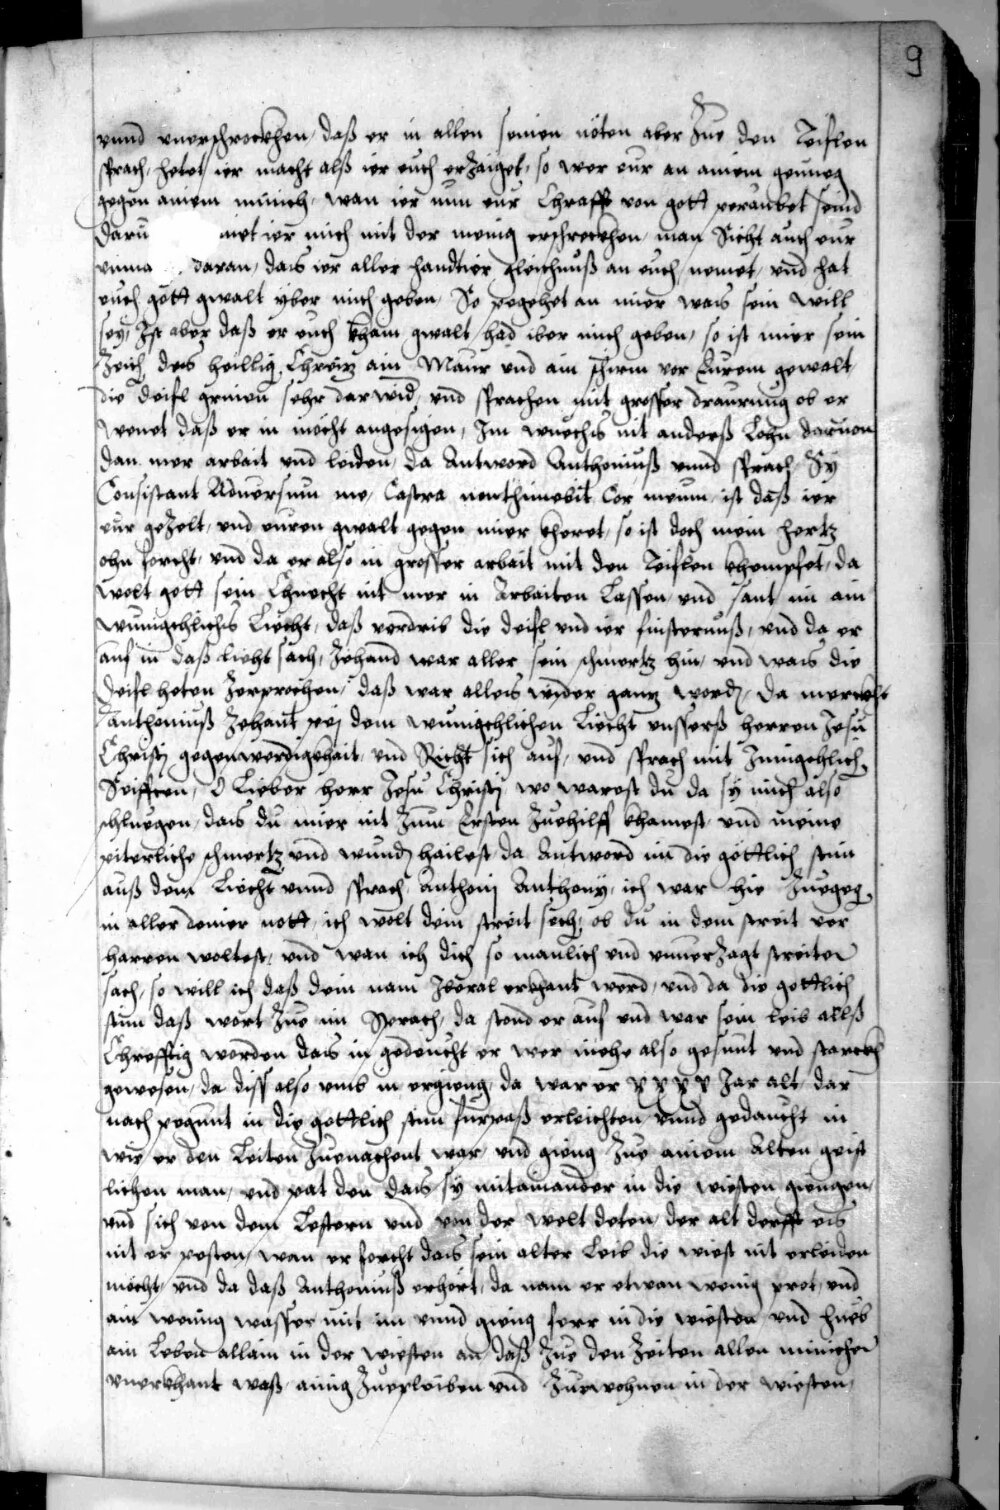 9
vnnd vnerschrockhen, daß er in allen seinen nöten aber Zue den Teiflen
sprach, hetet ier macht alß ier euch erZaiget, so wer eur an ainem genueg
gegen ainem münich, wan ier nun eur Chrafft von gott peraubet seind
Daru niet ier mich mit der menig erschreckhen, man Sicht auch eur
vnma daran, das ier aller handtier gleichnuß an euch nemet, vnd hat
euch gott gwalt yber mich geben, So pegehet an mier was sein will
sey, Ist aber daß er euch kham gwalt had iber mich geben, so ist mier sein
Zeich, des heillig Chreitz ain Maur vnd ain schirm vor Eurem gewalt
die Deifl grinen sehr darwid, vnd sprachen mit grosser draurung ob er
wenet daß er in möcht angesigen, Im wuechs nit anderß Lohn daruon
dan mer arbait vnd leiden, da Antword Anthoniuß vnnd sprach, Sy
Consistant Aduersum me, Castra nonthimebit Cor meum, ist daß ier
eur geZelt, vnd euren gwalt gegen mier kheret, so ist doch mein hertz
ohn forcht, vnd da er also in grosser arbait mit den Teiflen khempfet, da
wolt gott sein Chnecht nit mer in Arbaiten Lassen, vnd sant im ain
wunigchlichs Liecht, daß verdrib die Deifl vnd ier finsternuß, vnd da er
auf in daß licht sach, Zehand war aller sein schmertz hin, vnd was die
Deifl heten Zerprochen, daß war alles wider gantz word, da merckht
Anthoniuß Zehant pej dem wunigchlichen Liecht vnsserß herren Jesu
Christj gegenwerdigkhait, vnd Richt sich auf, vnd sprach mit Innigchlich
Seifften, O Lieber herr Jesu Christj, wo warest du da sy mich also
schluegen, das du mier nit Zum Ersten Zuehilff khamest, vnd meine
piterliche schmertz vnd wund hailest, da Antword im die göttlich stim
auß dem Liecht vnnd sprach, Anthonj Anthony, ich war hie Zuegeg
in aller deiner nott, ich wolt dein streit sech, ob du in dem streit ver
harren woltest, vnd wan ich dich so manlich vnd vnuerZagt streiten
sach, so will ich daß dein nam Iberal erkhant werd, vnd da die göttlich
stim daß wort Zue im Sprach, da stond er auf vnd war sein leib allß
Chrefftig worden das in gedeucht er wer niehe also gesunt vnd starckh
gewesen, da diss also vmb in ergieng, da war er x x x v Jar alt, dar
nach pegunt in die göttlich stim fürpaß erleichten vnnd gedaucht in
wie er den Leiten Zuenachent war, vnd gieng Zue ainem Alten geist
lichen man, vnd pat den das sy mitainander in die wiesten giengen,
vnd sich von dem Lestern vnd von der welt deten, der alt dorfft es
nit er pesten, wan er forcht das sein alter Leib die wiest nit erleiden
möcht, vnd da daß Anthoniuß erhört, da nam er etwan wenig prot, vnd
ain wening wasser mit im vnnd gieng ferr in die wiesten, vnd hueb
ain Leben allain in der wiesten an, daß Zue den Zeiten allen minichen
vnerkhant waß, ainig Zuepleiben vnd Zuewohnen in der wiesten,